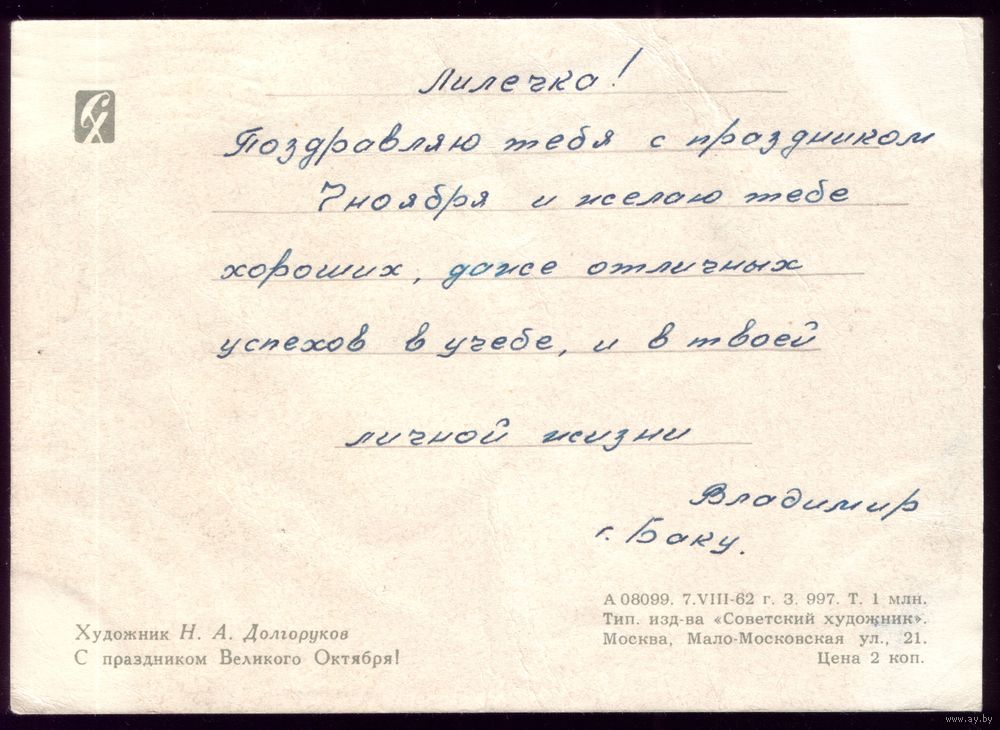 Лилечка!
Поздравляю тебя с праздником
7 ноября и желаю тебе
хороших, даже отличных
успехов в учебе, и в твоей
личной жизни
Владимир
г. Баку.
Художник Н. А. Долгоруков
С праздником Великого Октября!
А 08099. 7.VIII-62 г. З. 997. Т. 1 млн.
Тип. изд-ва «Советский художник».
Москва, Мало-Московская ул., 21.
Цена 2 коп.
www.ay.by